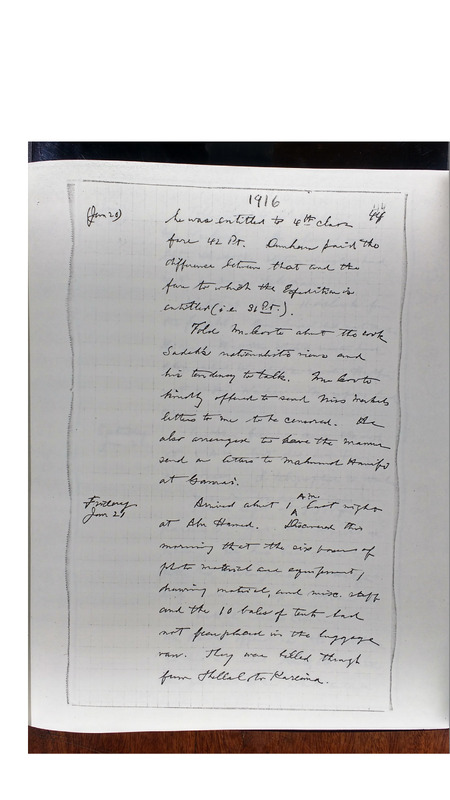 1916
44
(Jan 20) he was entitled to 4th class
fare 42 Pt. Dunham paid the
difference between that and the
fare to which the Expedition is
entitled (i.e. 36 Pt.).
Told about the cook
Sadek's nationalist views and
his tendency to talk.
kindly offered to send Miss
letters to me to be censored. He
also arranged to have the
send on letters to Mahmud
at Gamai.
Friday Arrived about 1 A.M. last night
Jan 21 at Abu Hamed. Discovered this
morning that the six boxes of
photo material and equipment,
drawing material, and misc. stuff
and the 10 bales of tents had
not been placed in the luggage
van. They were billed through
from Shellal to Kareima.